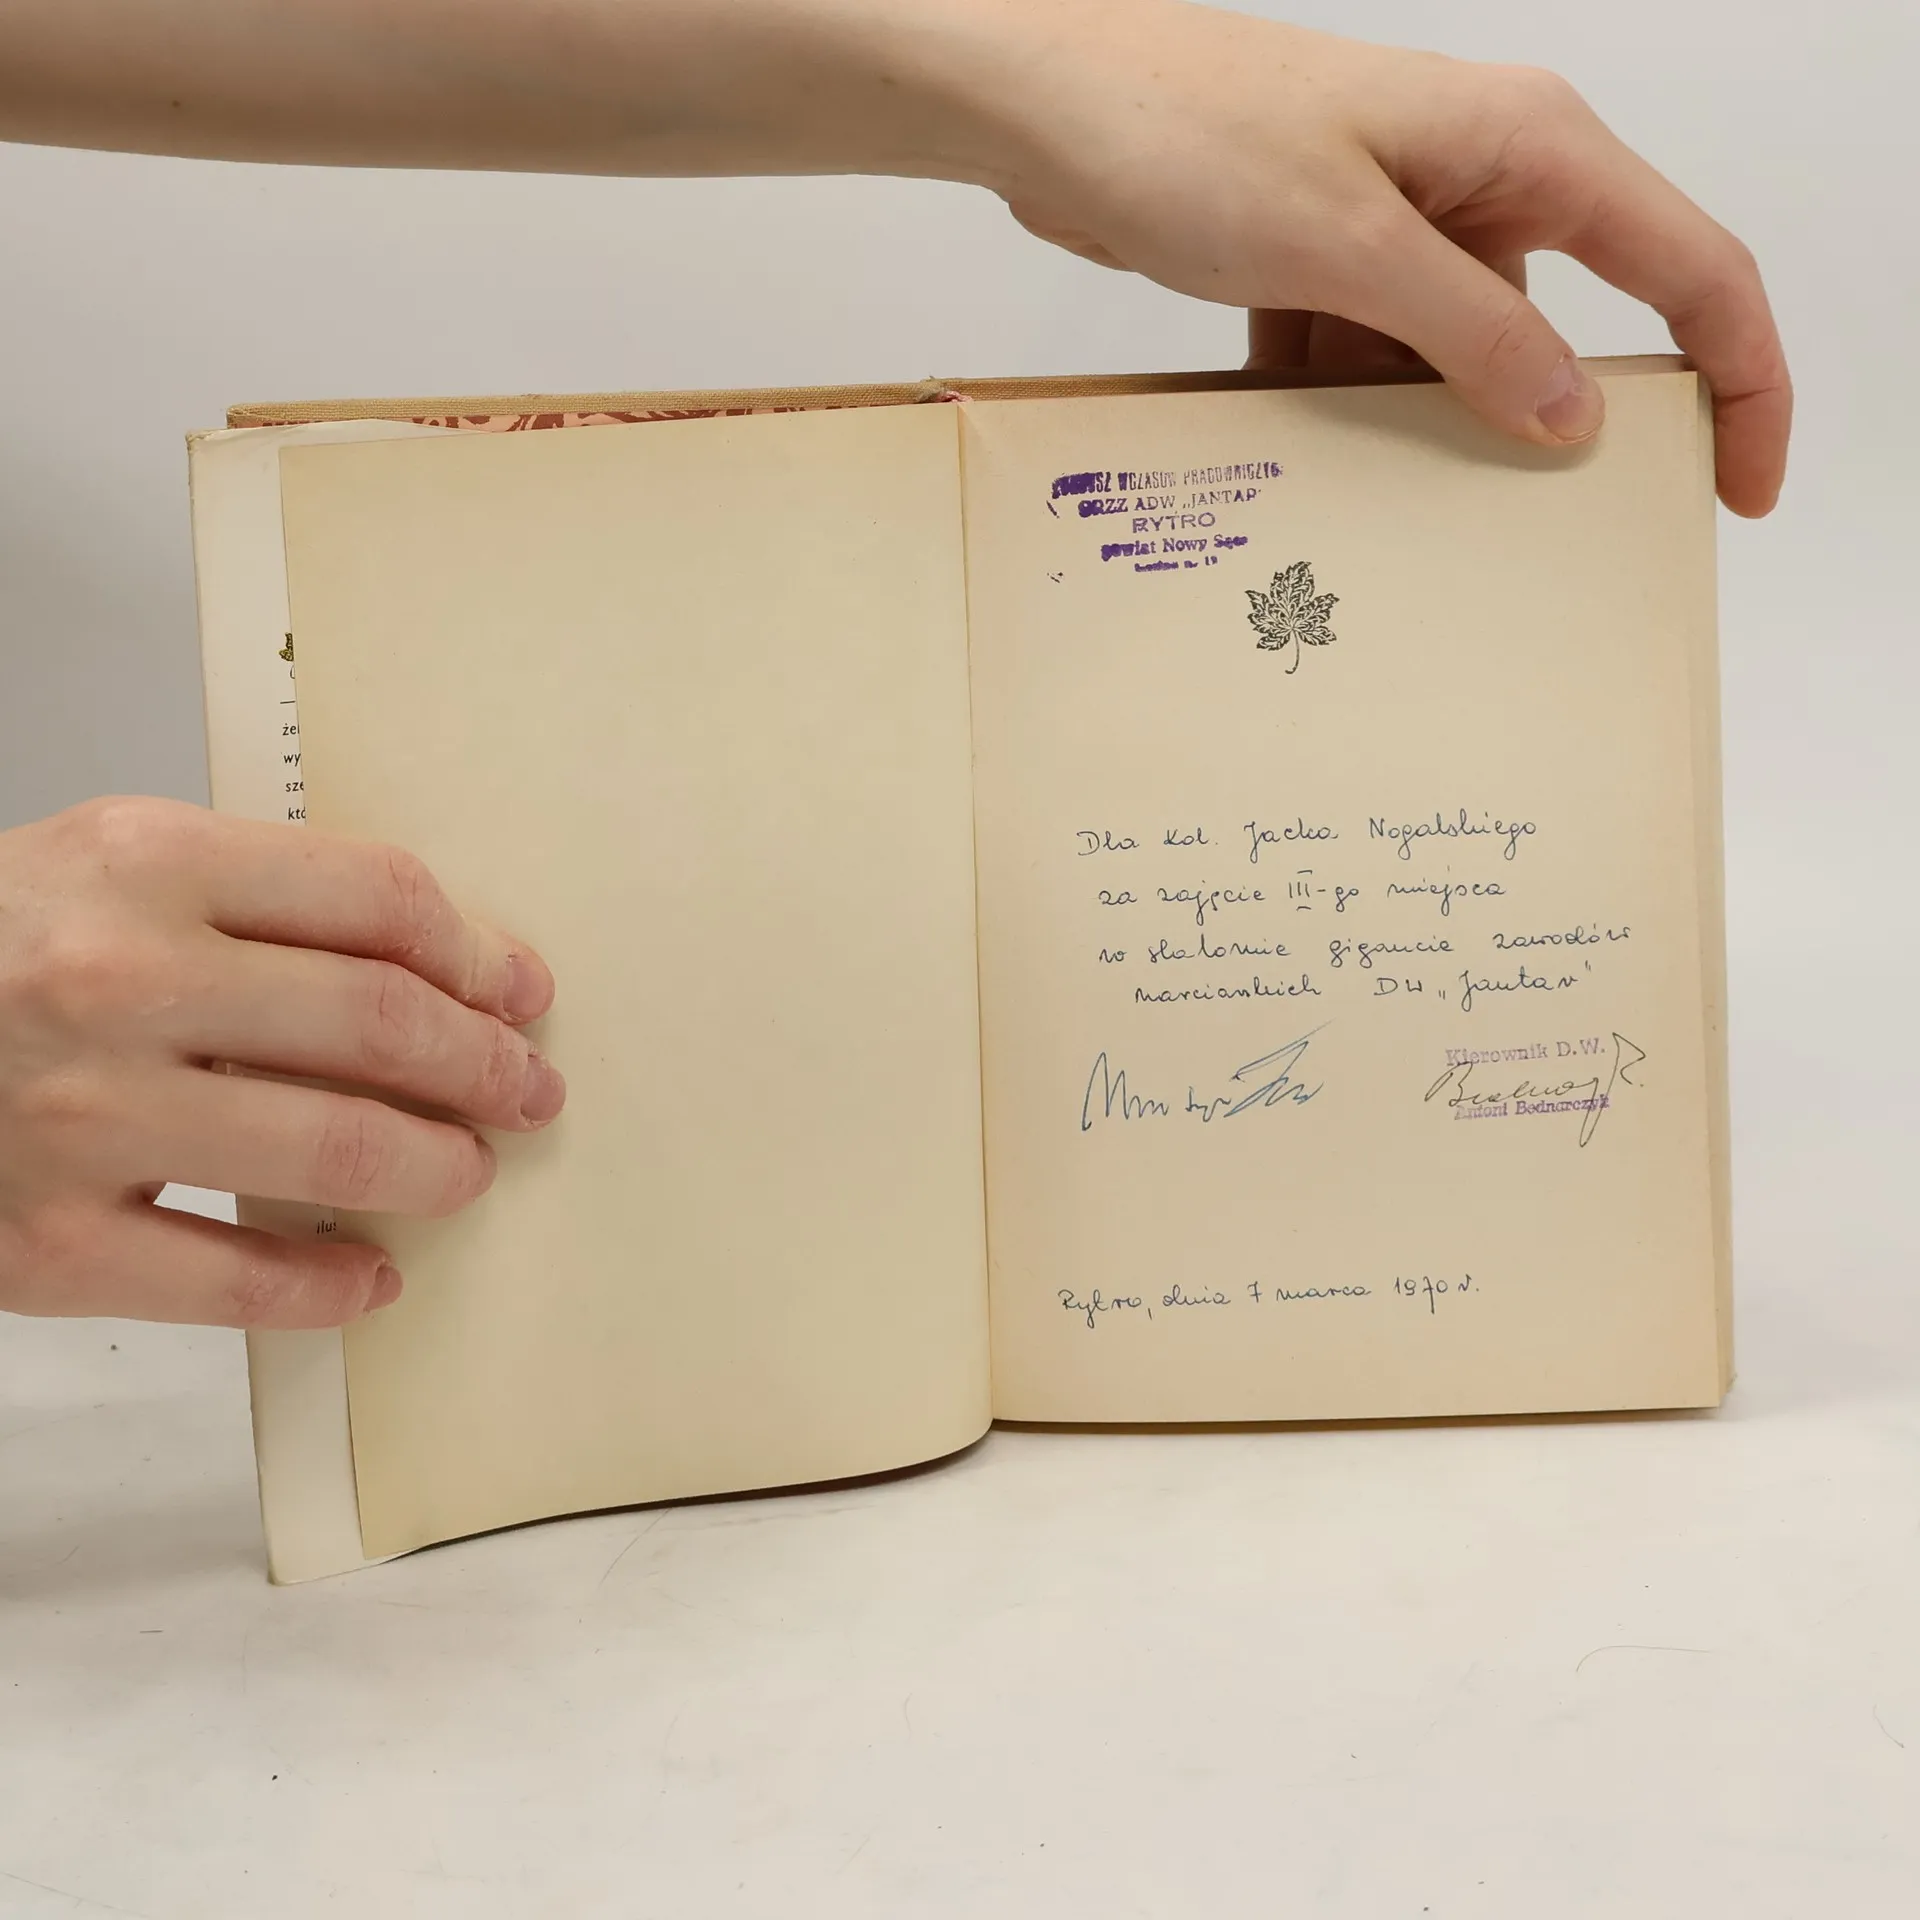 WCZASÓW PRACOWNICZYC
ORZZ ADW „JANTAR"
RYTRO
powiat Nowy Sącz
że
wy
sze
któ
Dla kol. Jacka Nogalskiego
za zajęcie III-go miejsca
w slalomie gigancie zawodów
narciarskich DW „Jantar"
Kierownik D.W.
Antoni Bednarczyk
ilus
Rytro, dnia 7 marca 1970 r.